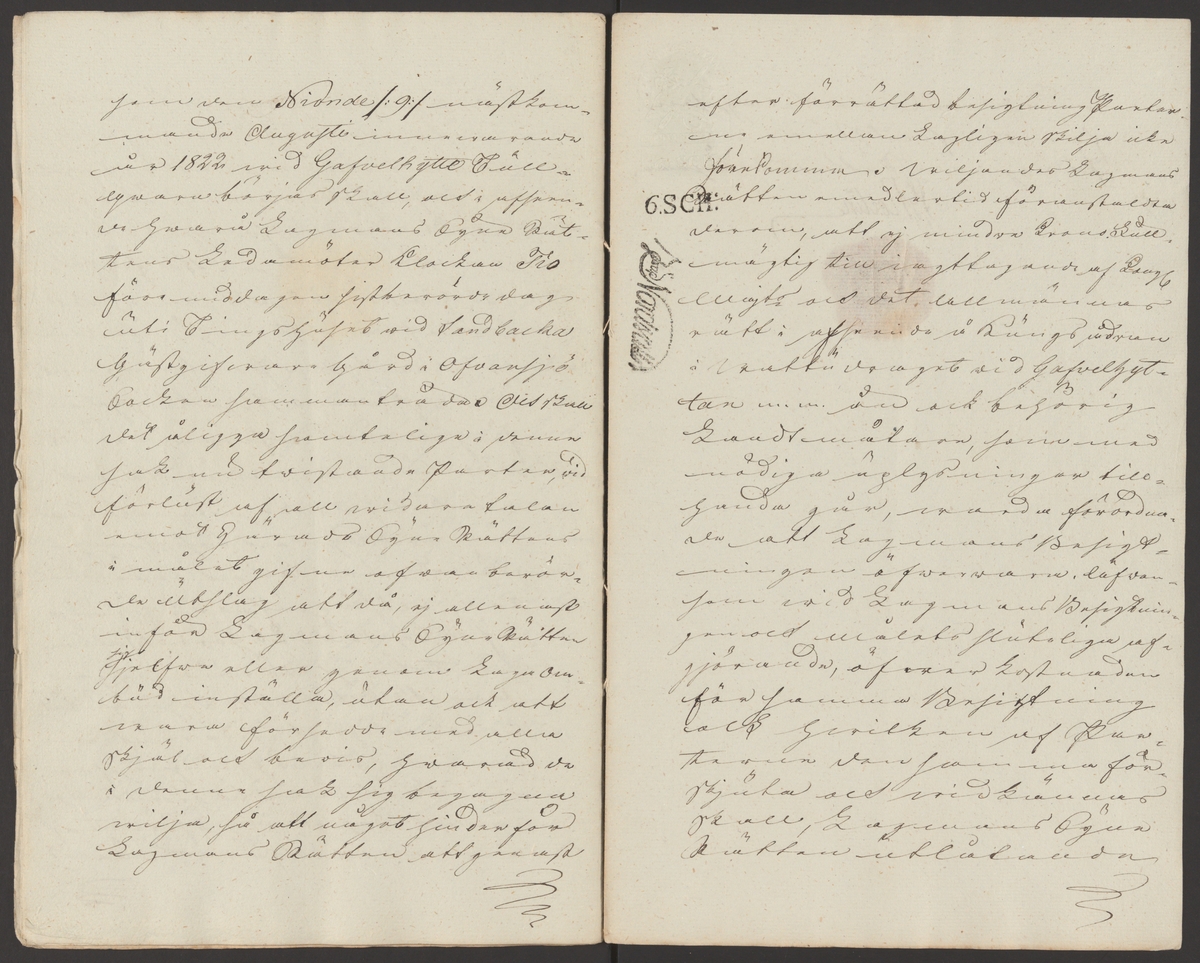 som den Nionde /:9:/ nästkom-
mande Augusti innewarande
år 1822 wid Gafvelhytte Tull-
qwarn börjas skall, och i afseen-
de hwarå Lagmans Tyne Rät-
tens Ledamöter Klockan Tio
före middagen sistberörde dag
uti Tingshuset wid Sandbacka
Gästgifware Gård i Ofvansjö
Socken sammanträda. Och skall
det åligga samtelige i denne
sak nu twistande Parter, wid
förlust af all widare talan
emot Härads Tyne Rättens
i målet gifne ofvanberör-
de Utslag att då, ej allenast
inför Lagmans Tyne Rätten
sig sjelfwe eller genom Laga Om-
bud inställa, utan ock att
wara försedde med alla
skjäl och bewis, hwaraf de
i denne sak sig begagna
wilja, så att något hinder för
Lagmans Rätten att genast
efter förrättad besigtning Parter-
ne emellan Lagligen skilja icke
förekomma. Wiljandes Lagmans
6.SCH:
Rätten emedlertid föranstalta
derom, att ej mindre Crono Full-
mägtig till iagttagande af Kongl
Maijts och det allmännas
rätt i afseende å Kungsådran
i Wattudraget wid Gafvelhyt-
tan m.m. än ock behörig
Landtmätare, som med
nödiga uplysningar till-
handa går, warda förordna-
de att Lagmans Besigt-
ningen öfwerwara. Läfwen-
som wid Lagmans Besigtnin-
gen och Målets sluteliga af-
gjörande, öfwer kostnaden
för samma Besigtning
och hwilken af Par-
terne den samma för-
skjuta och widkännas
skall, Lagmans Tyne
Rätten utlåtande